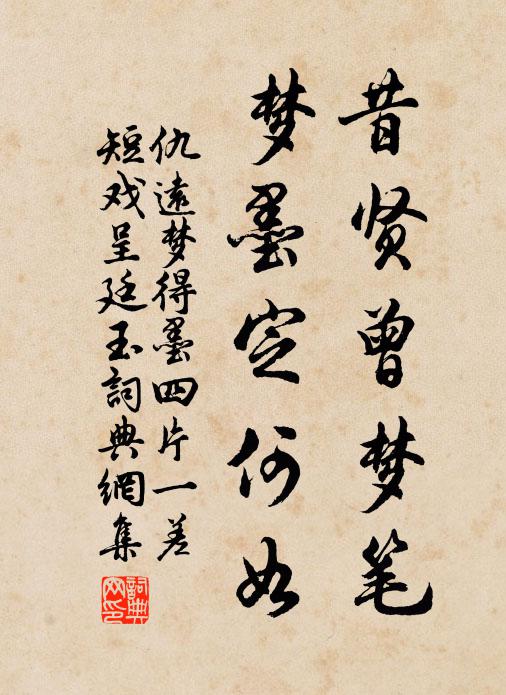 昔贤曾梦笔
梦墨定何如
仇远梦得墨四片一差
短戏呈廷玉詞典網集
詞典网印